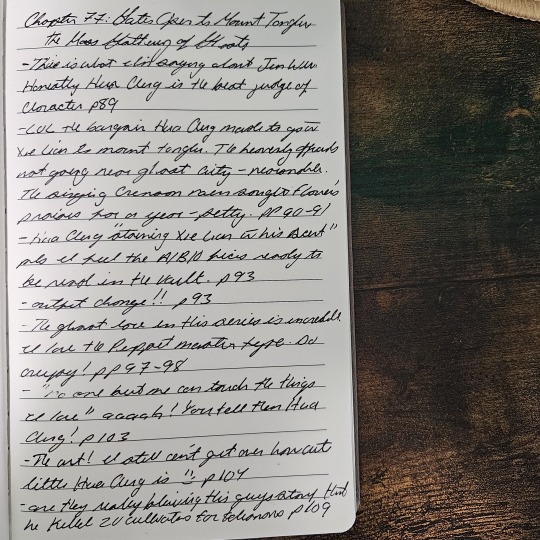 Chapter 77: Gates Open to Mount Tonglu
the Mass Gathering of Ghosts
- This is what I'm saying about Jun Wu.
Honestly Hua Cheng is the best judge of
Character p89
- LOL the bargain Hua Cheng made to
Xie Lian to mount tonglu. The heavenly officials
not going near ghost city - reasonable.
The singing Crimson rain sought Flower's
praises for a year - petty. pp 90-91
- Hua Cheng "staining Xie Lian in his scent"
pls I feel the A/B/O fics ready to
be read in the vault. p93
- outfit change!! p93
- The ghost lore in this series is incredible
I love the Puppet master type. So
creepy! pp97-98
- "no one but me can touch the things
I love" aaaah! You tell them Hua
Cheng! p103
- The art! I still can't get over how cut
little Hua Cheng is p104
- are they really believing this guys story that
he killed 20 cultivators for p109